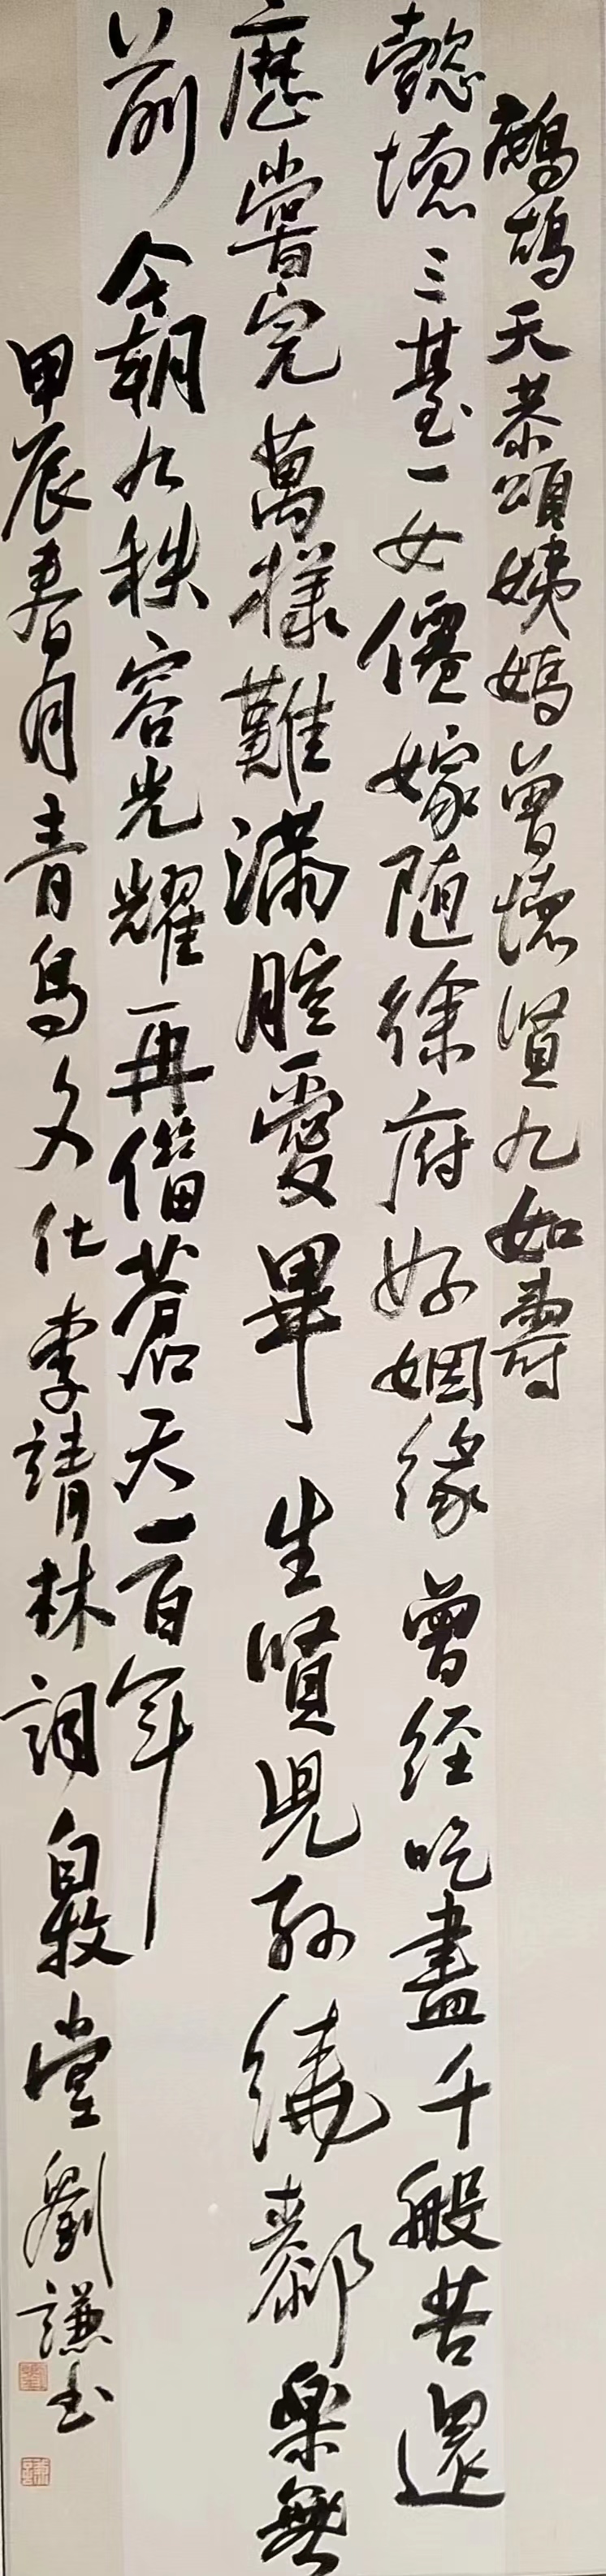 鷓鴣天恭頌姨媽曾德賢九如壽
懿德三臺一女僊嫁隨徐府好姻緣曾經吃盡千般苦還
歷嘗完萬樣難滿腔愛畢生賢兒孫繞厀樂無
前今朝九秩容光耀再借蒼天一百年
甲辰春月青島文仕李請林詞白牧堂劉謙書